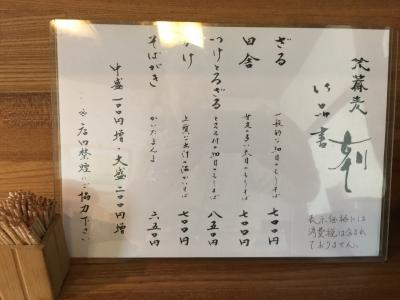 蕎麦
御品書
ざる 一般的な細目のもりそば 七〇〇円
田舎 甘皮の多い太目のもりそば 七〇〇円
つけとろざる とろろ付の細目のもりそば 八五〇円
かけ 上質な出汁の温かいそば 七〇〇円
そばがき かいたまんま 六五〇円
中盛一〇〇円増・大盛二〇〇円増
店内禁煙にご協力下さい
表示価格には
消費税は含まれ
ておりません。